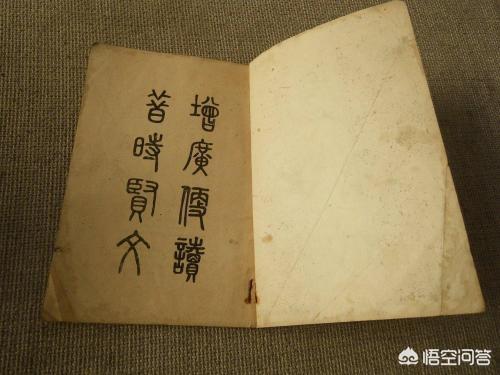 增廣便讀
昔時賢文
悟空问答